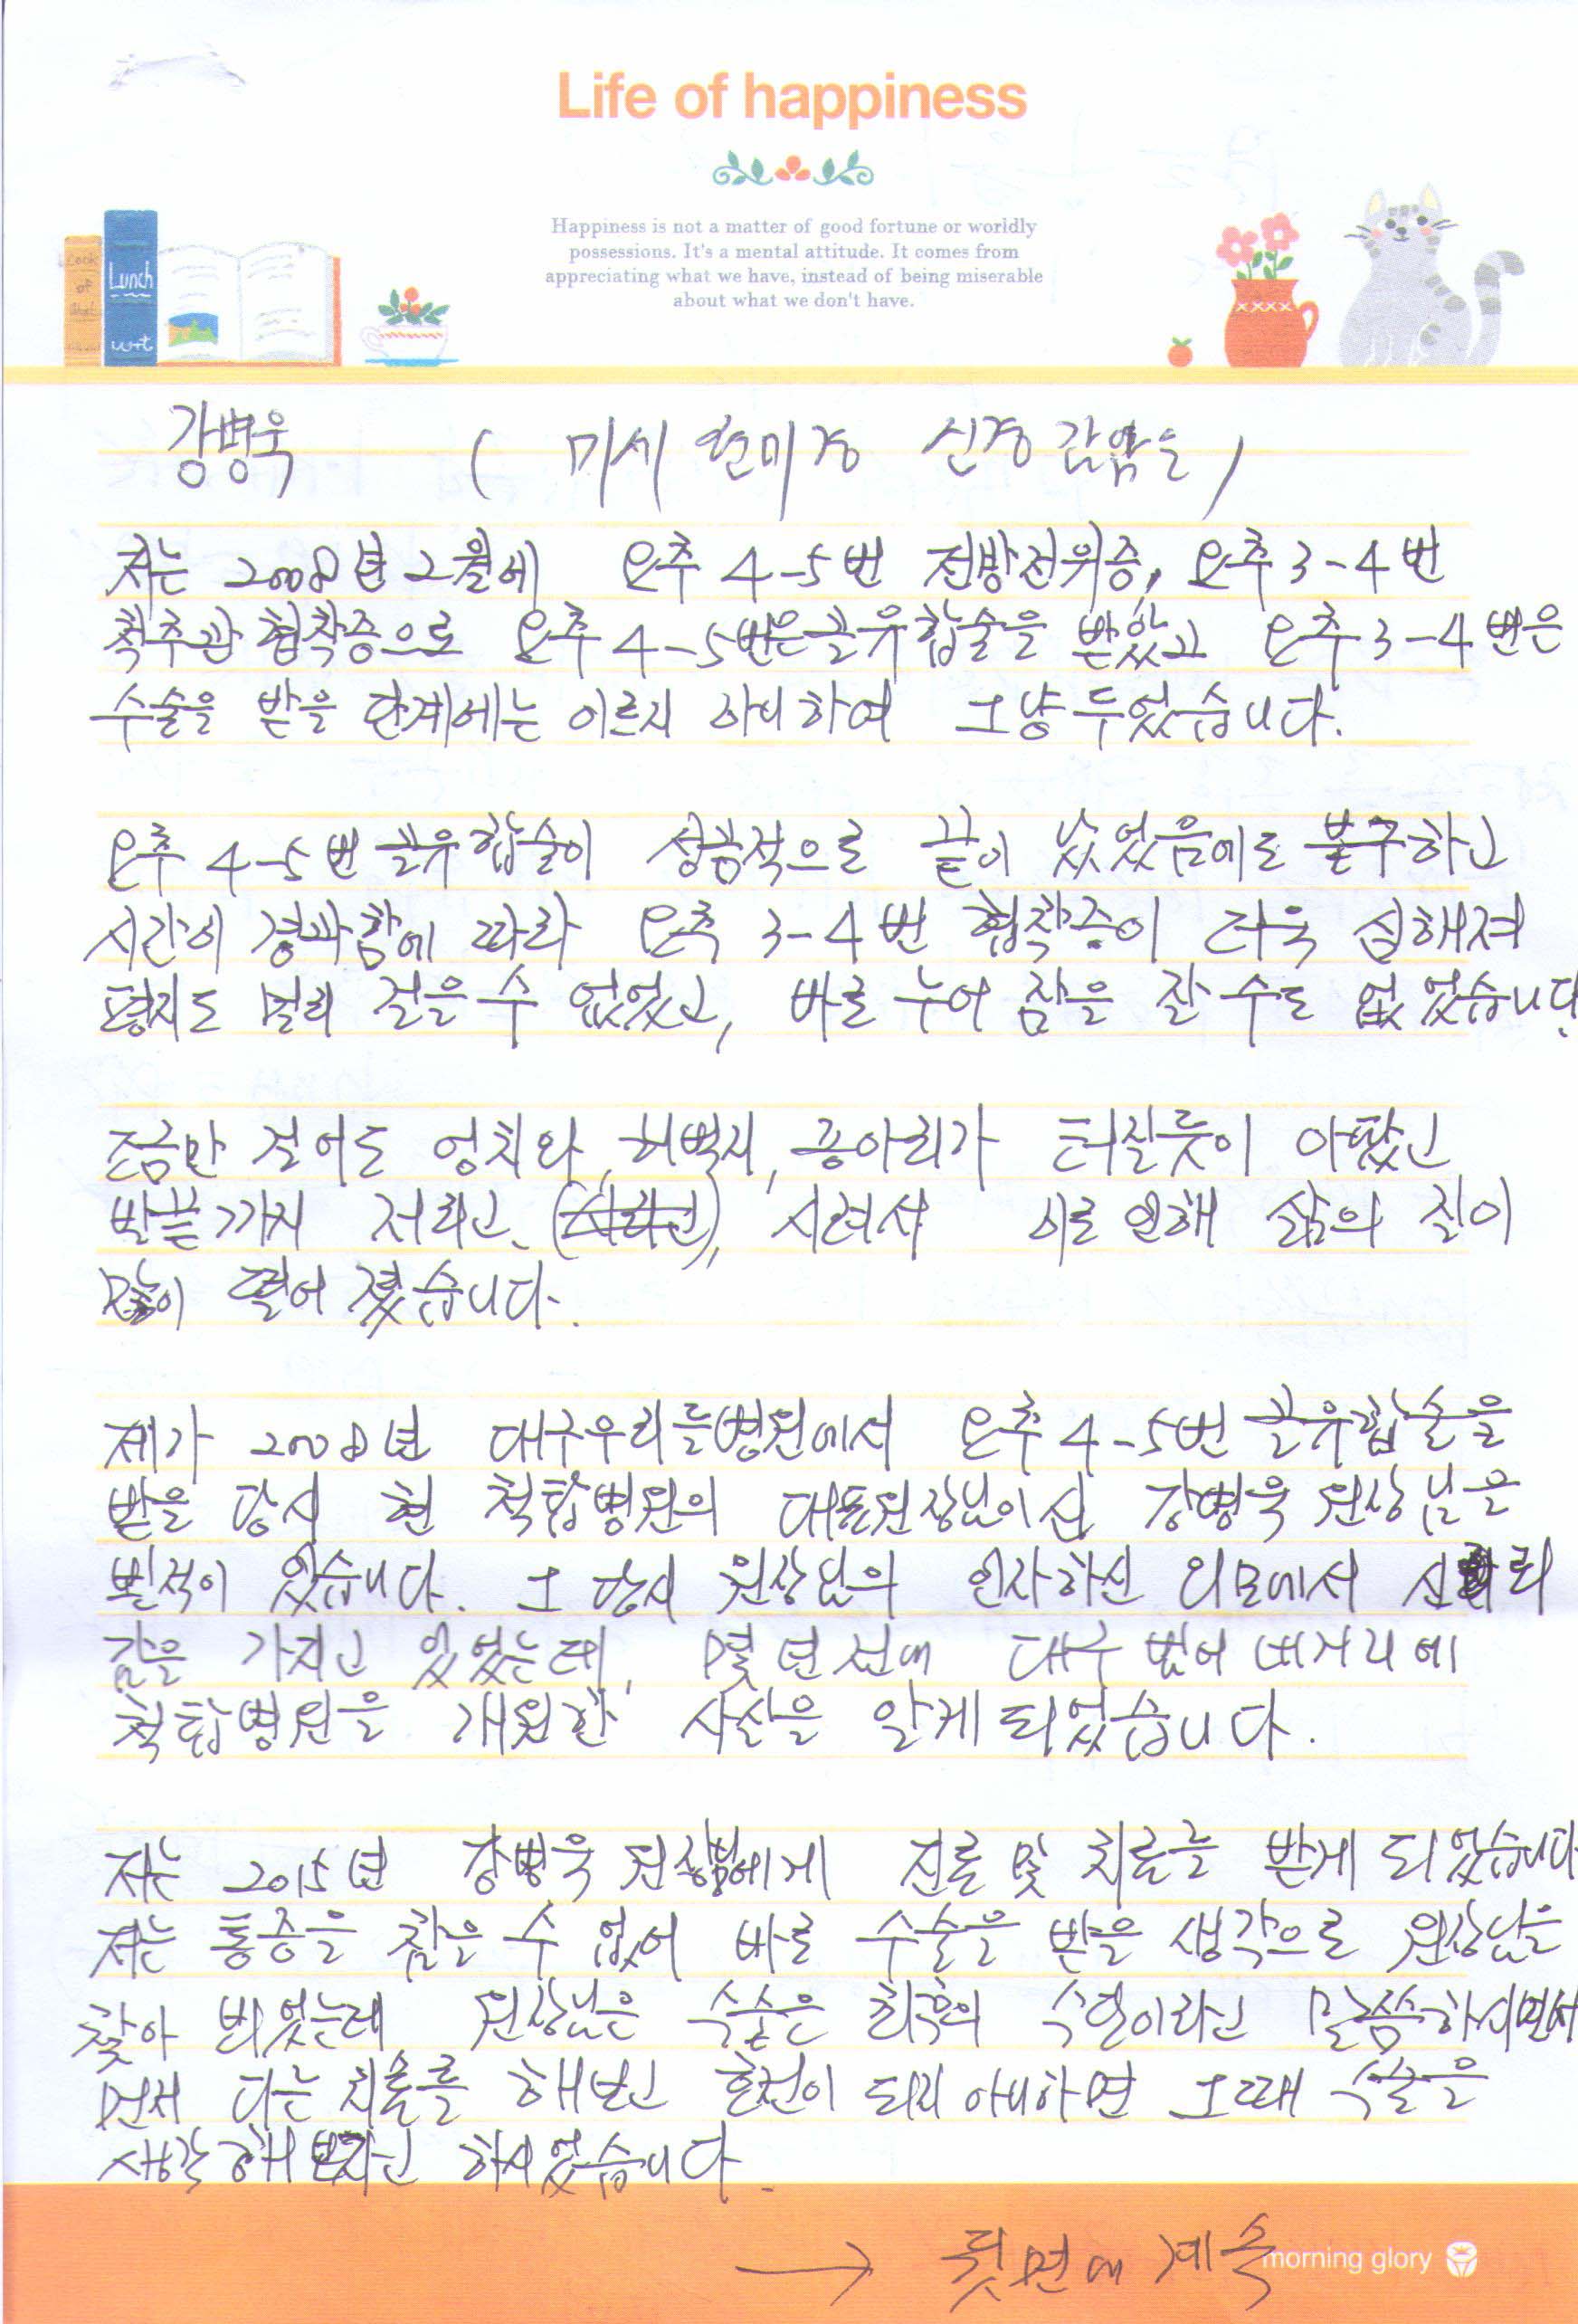 Life of happiness
Happiness is not a matter of good fortune or worldly
possessions. It's a mental attitude. It comes from
appreciating what we have, instead of being miserable
about what we don't have.
Cook
of
Lunch
강병욱 ( 미세 현미경 신경 감압술 )
저는 2008년 2월에 요추 4-5번 전방전위증, 요추 3-4번
척추관 협착증으로 요추 4-5번은 골유합술을 받았고 요추 3-4번은
수술을 받을 단계에는 이르지 아니하여 그냥 두었습니다.
요추 4-5번 골유합술이 성공적으로 끝이 났었음에도 불구하고
시간이 경과함에 따라 요추 3-4번 협착증이 더욱 심해져
평지도 멀리 걸을 수 없었고, 바로 누어 잠을 잘 수도 없었습니다.
조금만 걸어도 엉치와, 허벅지, 종아리가 터질듯이 아팠고
발끝까지 저리고, 시려서 이로 인해 삶의 질이
많이 떨어 졌습니다.
제가 2008년 대구우리들병원에서 요추 4-5번 골유합술을
받을 당시 현 척탑병원의 대표원장님이신 강병욱 원장님을
뵌적이 있습니다. 그 당시 원장님의 인자하신 외모에서 신뢰
감을 가지고 있었는데, 몇 년 전에 대구 범어 네거리에
척탑병원을 개원한 사실을 알게 되었습니다.
저는 2015년 강병욱 원장님에게 진료 및 치료를 받게 되었습니다
저는 통증을 참을 수 없어 바로 수술을 받을 생각으로 원장님을
찾아 뵈었는데 원장님은 수술은 최후의 수단이라고 말씀하시면서
먼저 다른 치료를 해보고 호전이 되지 아니하면 그때 수술을
생각해 보자고 하시었습니다.
→ 뒷면에 계속
morning glory